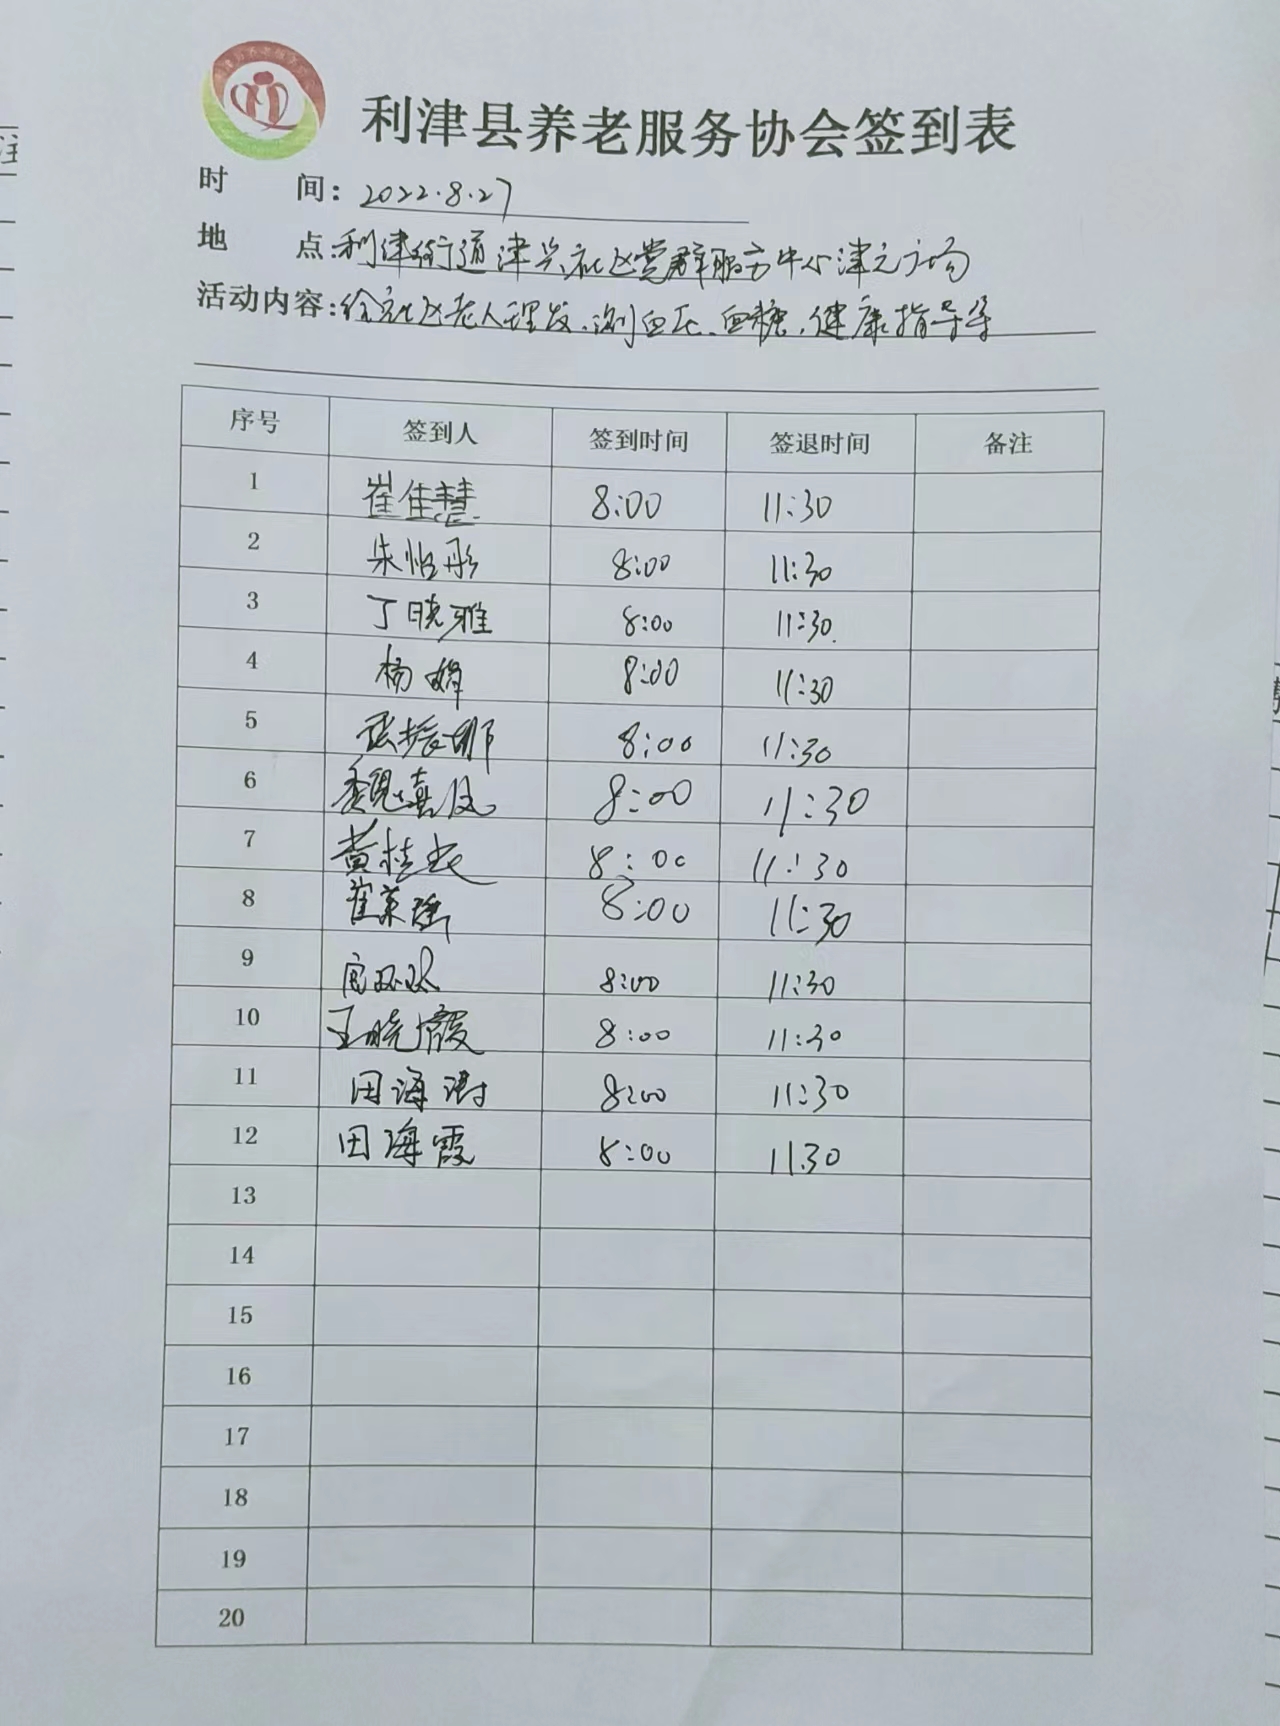 利津县养老服务协会签到表
时 间：2022.8.27
地 点：利津街道津兴社区党群服务中心津元广场
活动内容：给社区老人理发、测血压、血糖、健康指导等
序号 签到人 签到时间 签退时间 备注
1 崔佳慧 8:00 11:30
2 朱怡彤 8:00 11:30
3 丁晓雅 8:00 11:30
4 杨娟 8:00 11:30
5 张振娜 8:00 11:30
6 魏嘉 8:00 11:30
7 黄桂 8:00 11:30
8 崔 瑶 8:00 11:30
9 8:00 11:30
10 王晓霞 8:00 11:30
11 田海 8:00 11:30
12 田海霞 8:00 11.30
13
14
15
16
17
18
19
20